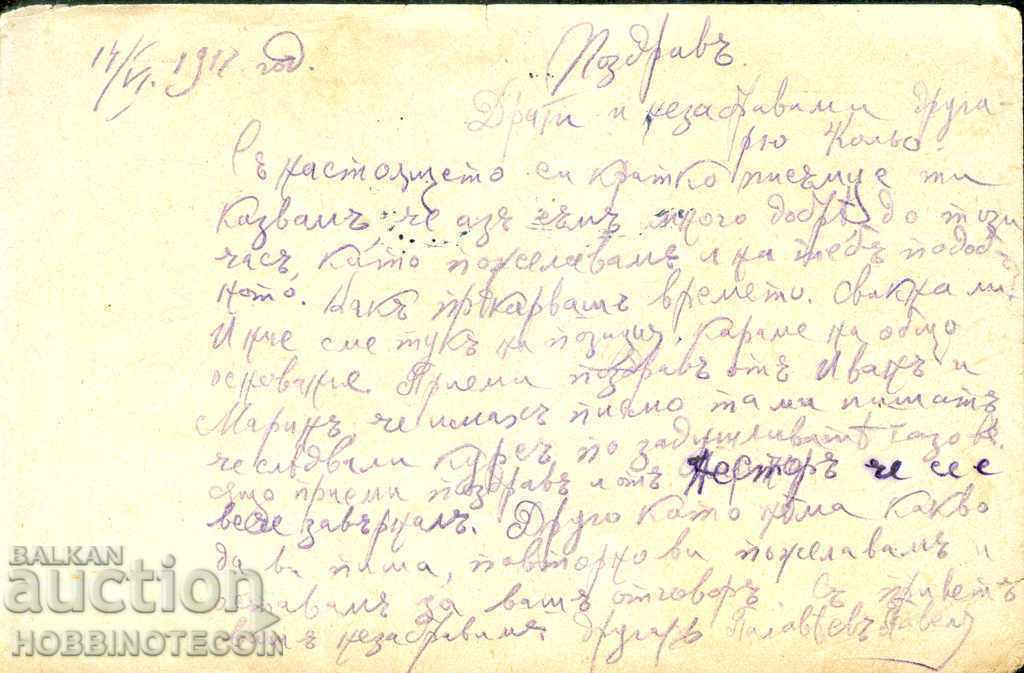 14/VI. 1918 год.
Поздравъ.
Драги и незабравими друга-
рю Кольо.
Съ настоящето си кратко писъмце ти
казвамъ, че азъ съмъ много добрѣ до този
часъ, като пожелавамъ и на тебъ подоб-
ното. Какъ прѣкарвашъ времето.
Иначе сме тукъ на позиция, караме на общо
основание. Приеми поздравъ отъ Иванъ и
Маринъ, че имахъ писмо та ми пишатъ
че слѣдвали курсъ по задушливитѣ газове.
също приеми поздравъ и отъ Несторъ че се е
вече завърналъ. Друго като нѣма какво
да ви пиша, повторно ви пожелавамъ и
оставамъ за вашъ отговоръ. Съ приветъ
вашъ незабравимъ другарь Павелъ
BALKAN
auction
HOBBINOTECOIN